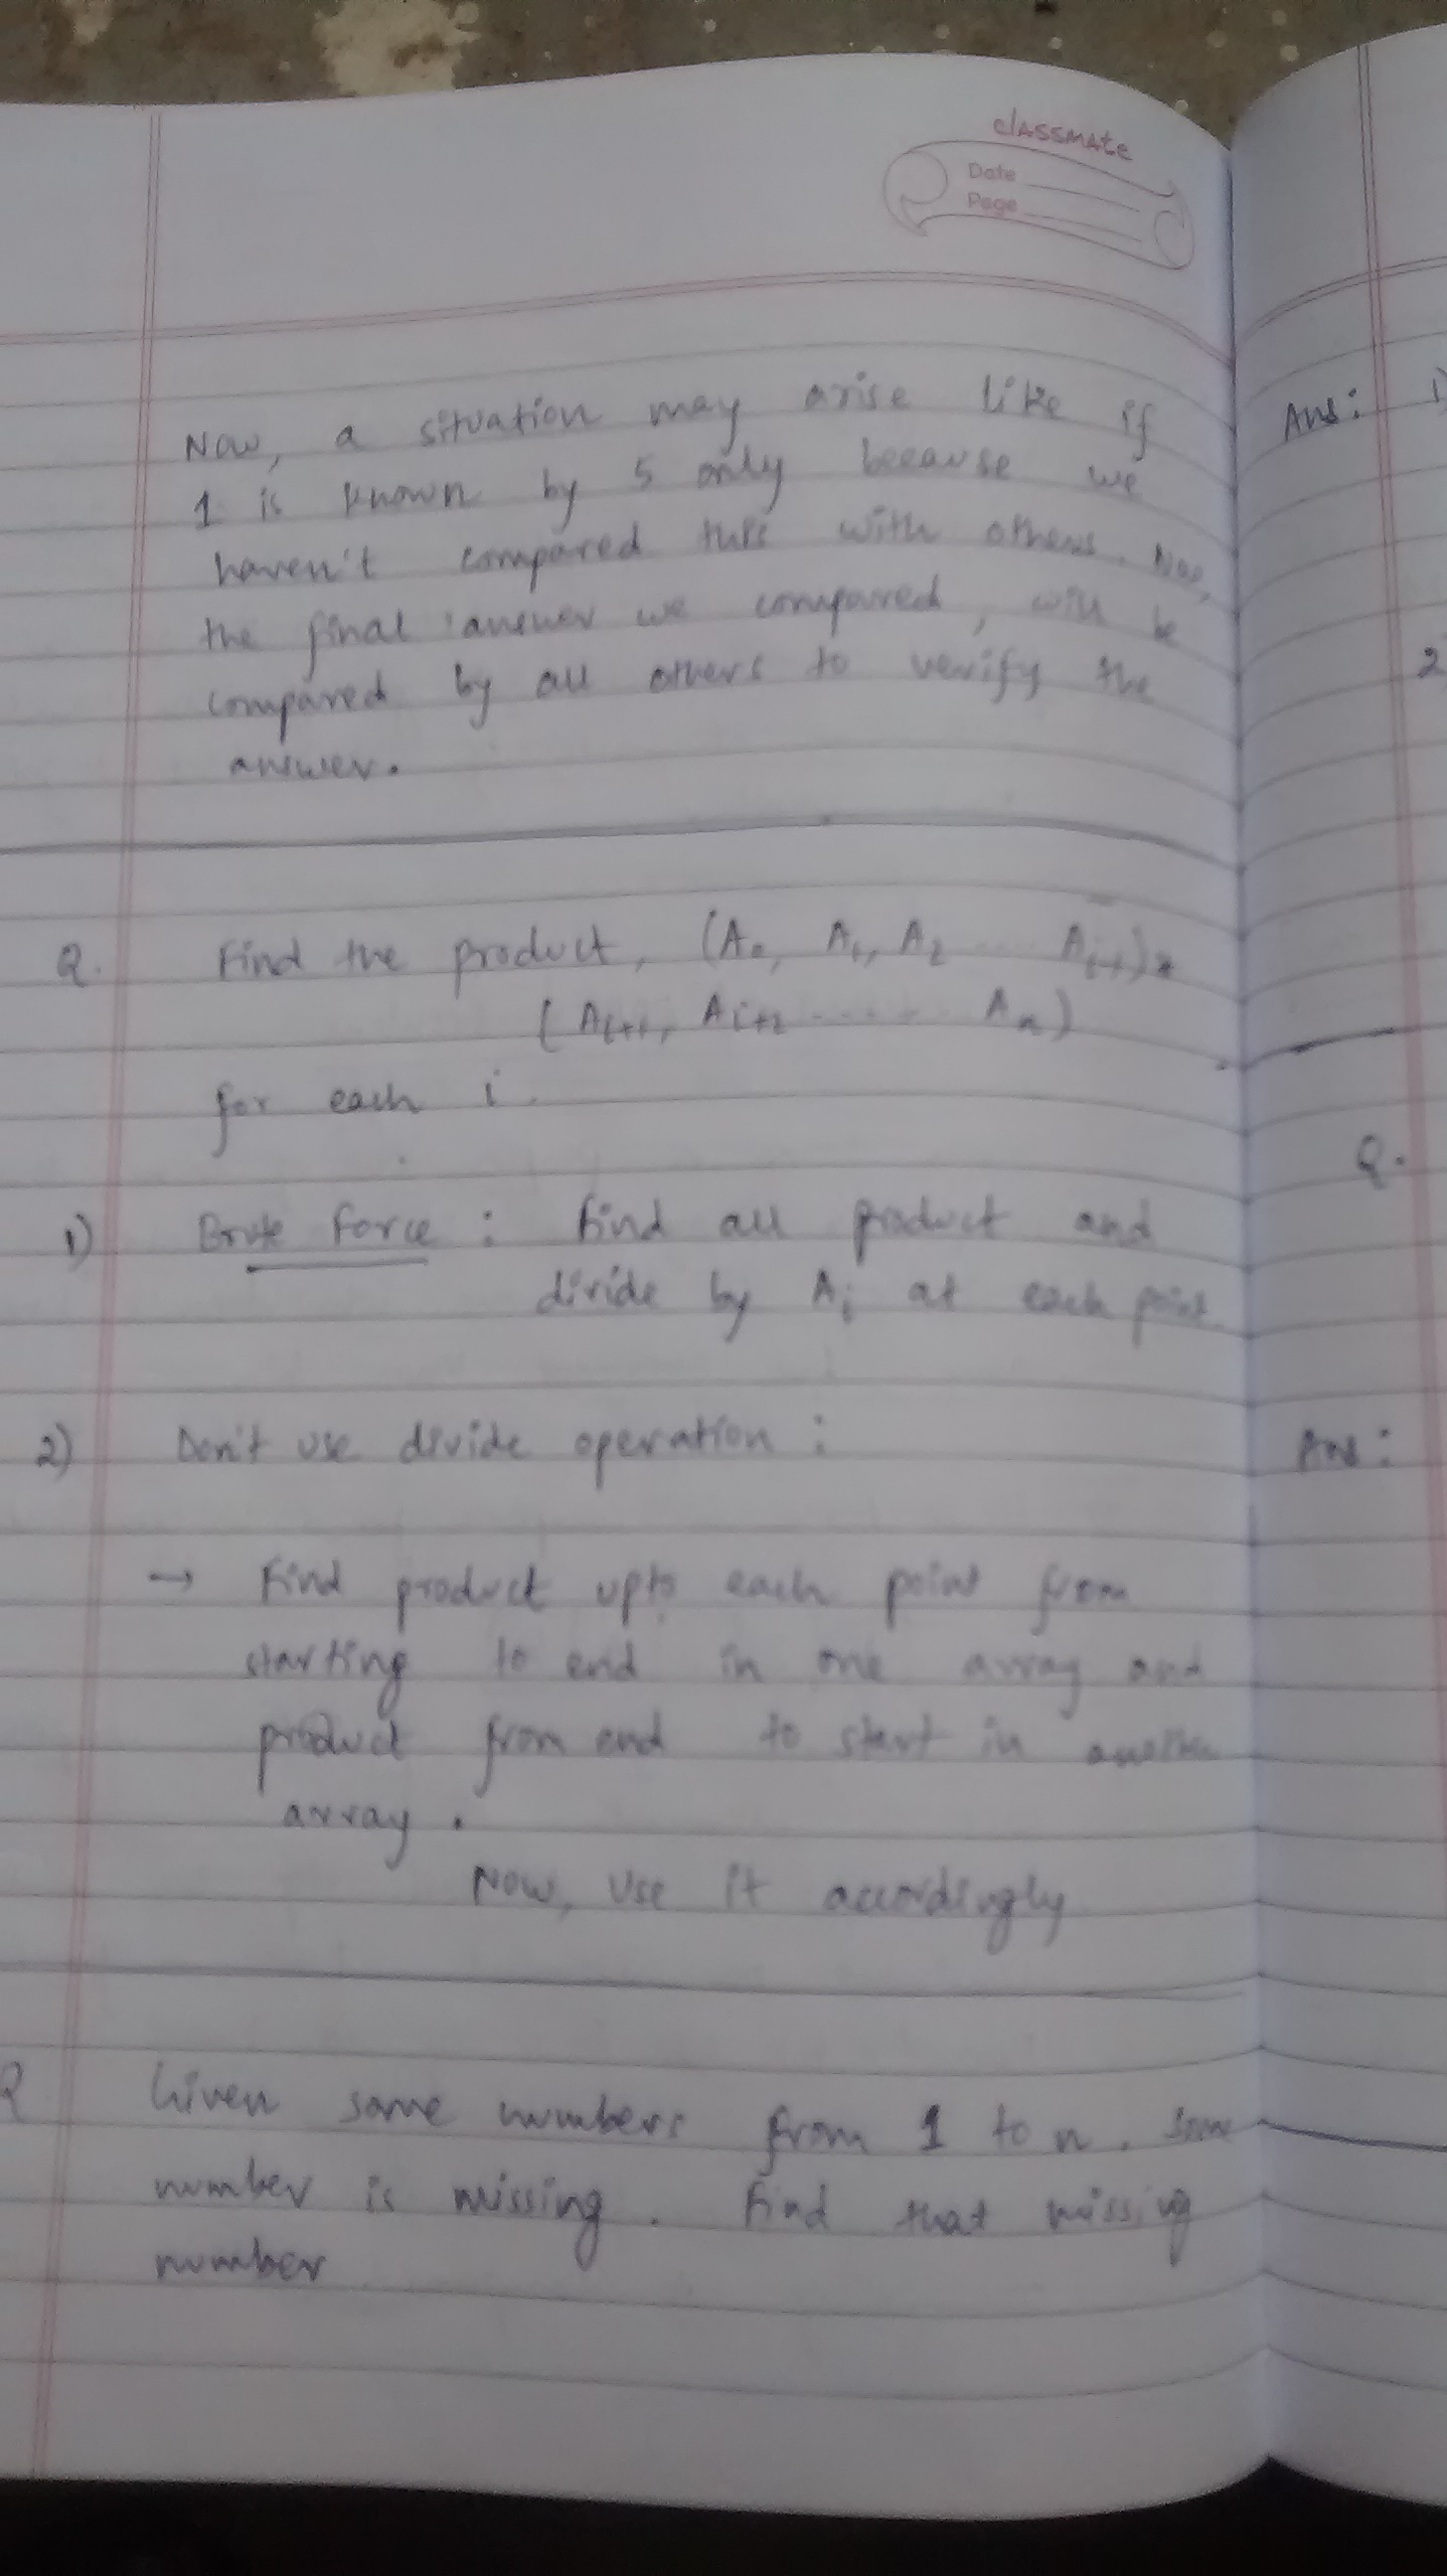 classmate
Date
Page
Now, a situation may arise like if
1 is known by 5 only because we
haven't compared this with others. Now,
the final answer we compared, will be
compared by all others to verify the
answer.
Q. Find the product, (A₀, A₁, A₂ ..... Aᵢ₋₁) *
(Aᵢ₊₁, Aᵢ₊₂ ....... Aₙ)
for each i.
1) Brute Force : Find all product and
divide by Aᵢ at each point.
2) Don't use divide operation :
→ Find product upto each point from
starting to end in one array and
product from end to start in another
array.
Now, use it accordingly
Q Given some numbers from 1 to n. Some
number is missing. Find that missing
number
Ans: 1)
2
Q.
Ans: